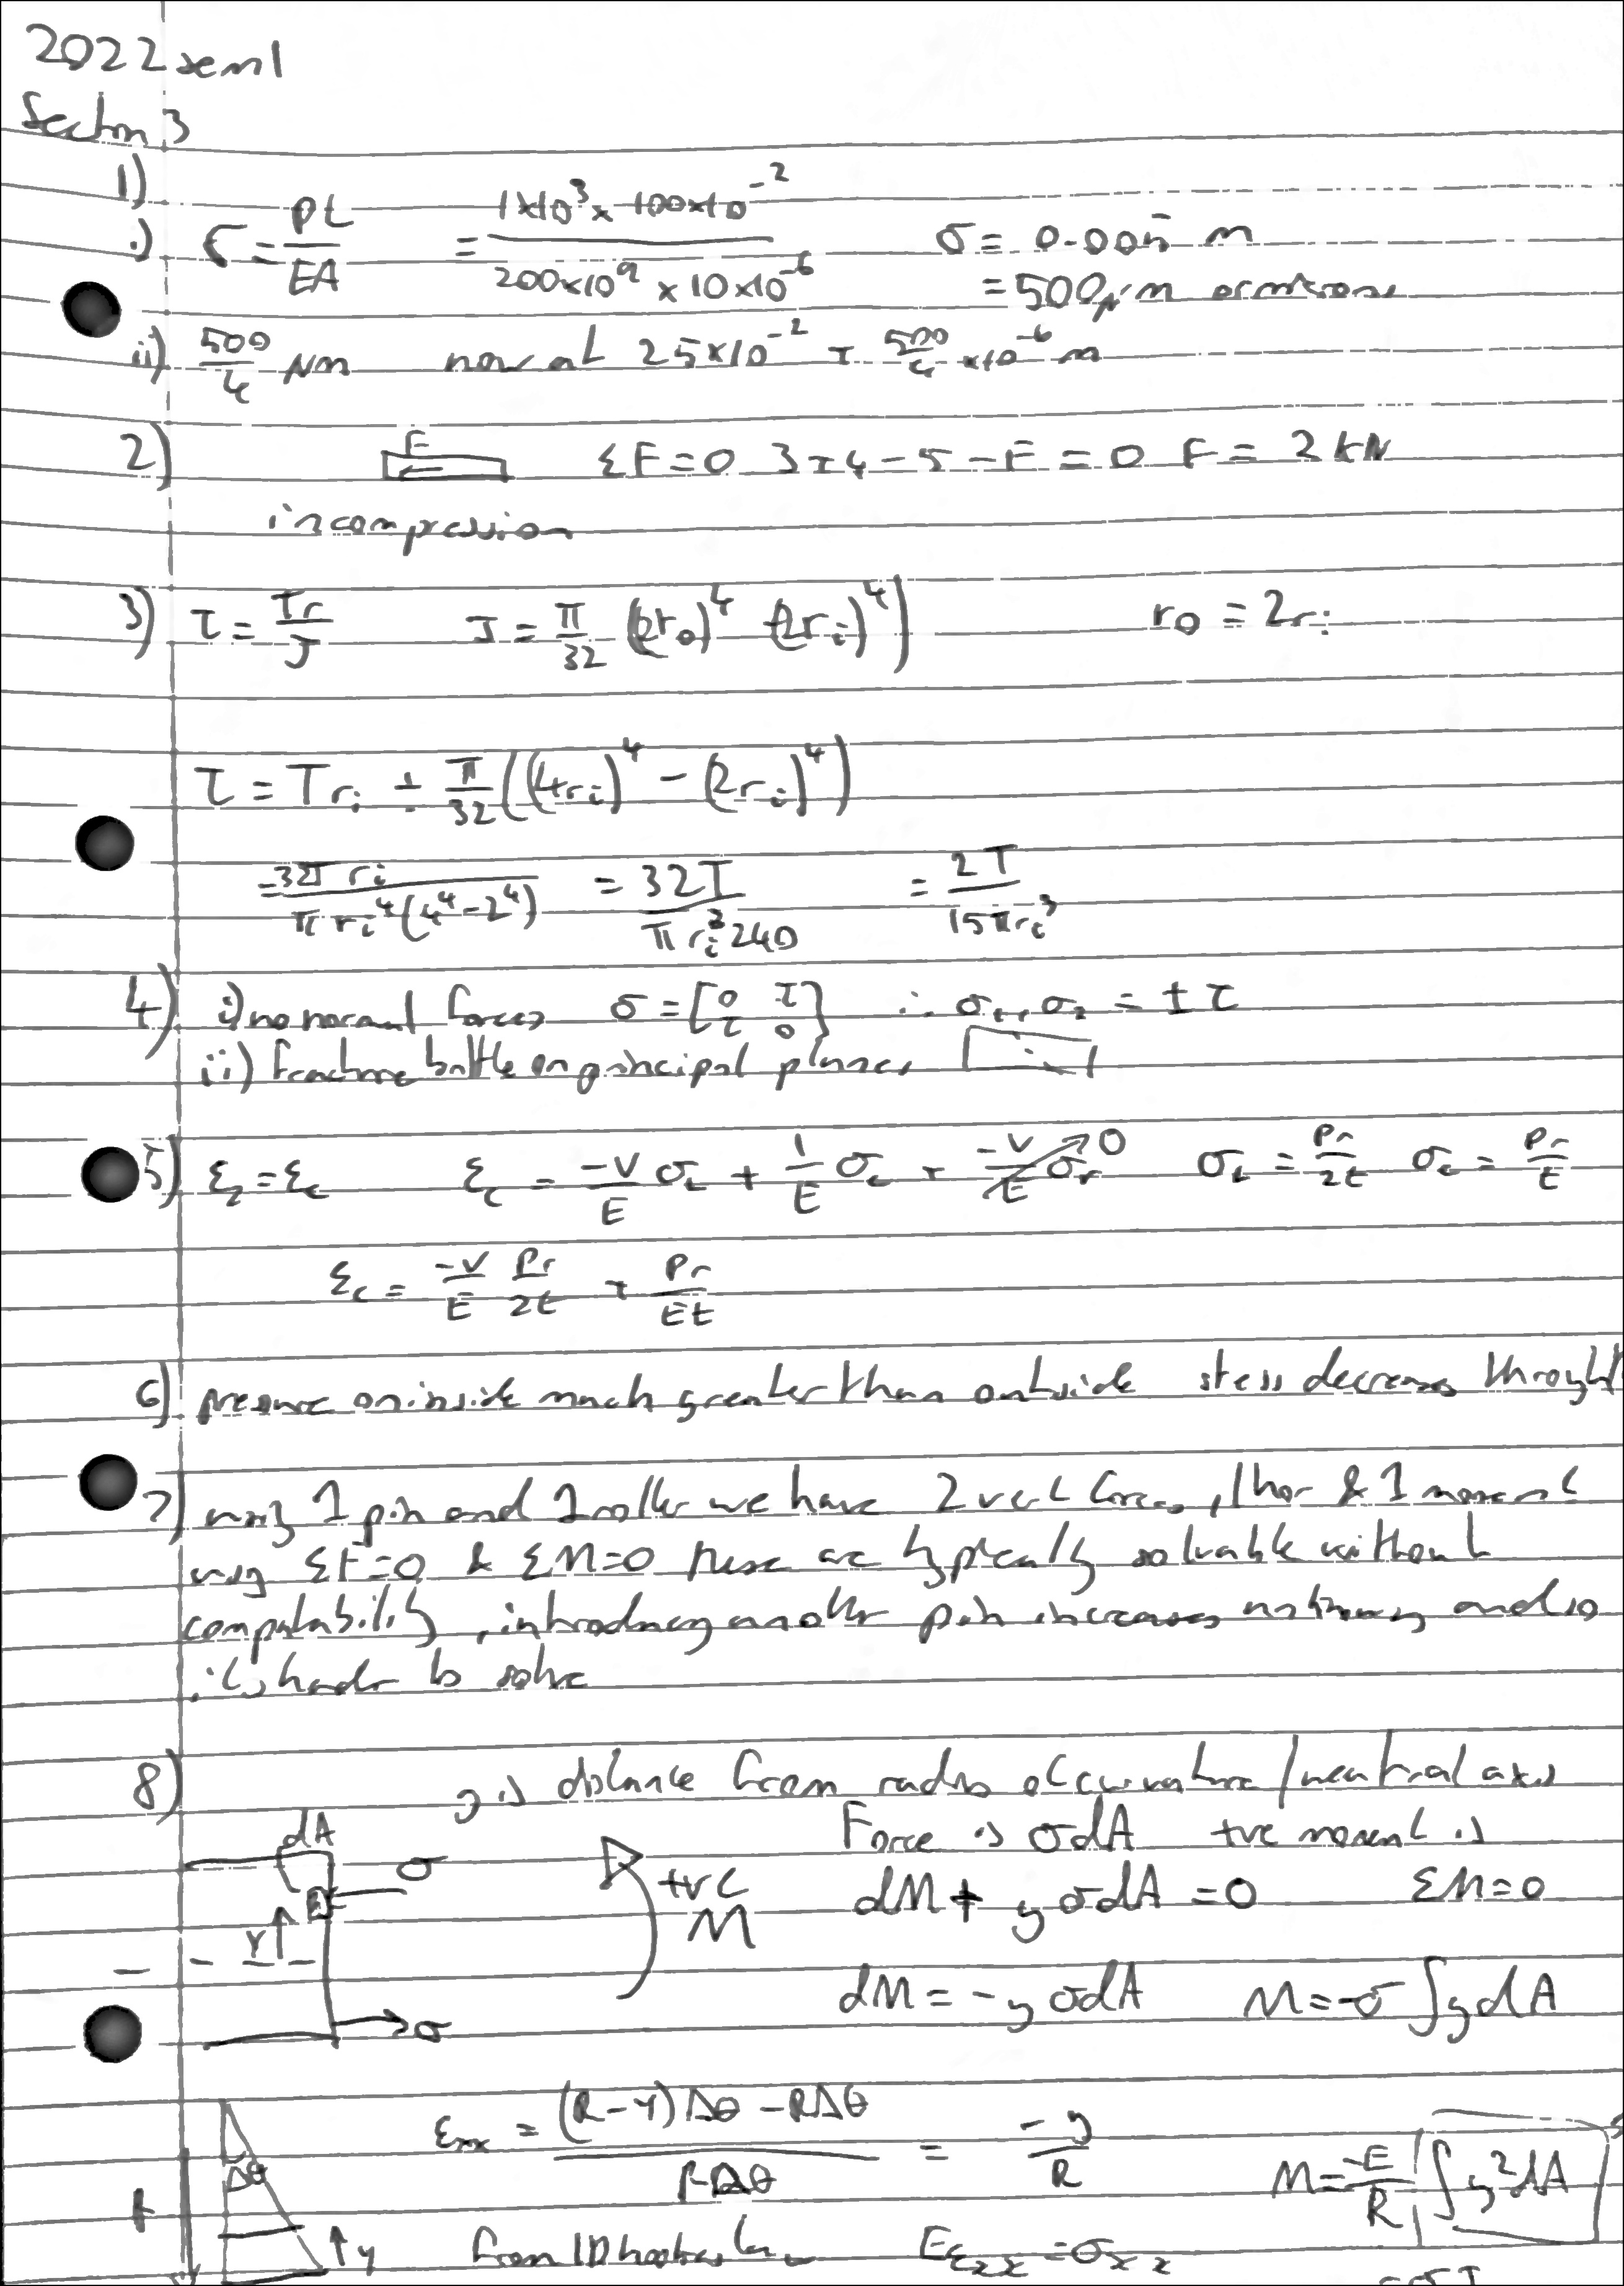 2022 sem1
Section 3
1)
i) δ = PL/EA = 1x10³ x 100x10⁻² / 200x10⁹ x 10x10⁻⁶ σ = 0.005 m
= 500μm or microns
ii) 500/4 μm now at 25x10⁻² + 500/4 x10⁻⁶ m
2) F ΣF=0 3+4-5-F=0 F= 2 kN
in compression
3) τ = Tr/J J = π/32 ((2r₀)⁴ - (2rᵢ)⁴) r₀ = 2rᵢ
τ = Trᵢ ÷ π/32 ((4rᵢ)⁴ - (2rᵢ)⁴)
= 32T rᵢ / π rᵢ⁴(4⁴-2⁴) = 32T / π rᵢ³ 240 = 2T / 15πrᵢ³
4) i) no normal forces σ = [0 τ τ 0] ∴ σ₁,σ₂ = ± τ
ii) fracture brittle on principal planes
5) ε₂=ε_c ε_c = -v/E σ_L + 1/E σ_c + -v/E σ_r → 0 σ_L = Pr/2t σ_c = Pr/t
ε_c = -v/E Pr/2t + Pr/Et
6) pressure on inside much greater than outside stess decreases throught
7) using 1 pin and 1 roller we have 2 vert forces, 1 hor & 1 moment
using ΣF=0 & ΣM=0 these are typically solvable without
compatability, introducing another pin increases unknowns and so
it is harder to solve
8) y is distance from radius of curvature / neutral axis
dA Force is σdA +ve moment is
σ +ve M dM + yσdA = 0 ΣM=0
Y
dM = -yσdA M=-σ∫ydA
σ
ε_xx = (R-y)Δθ - RΔθ / RΔθ = -y/R M=-E/R ∫y²dA
Δθ
↑y from 1D hookes law Eε_xx = σ_xx